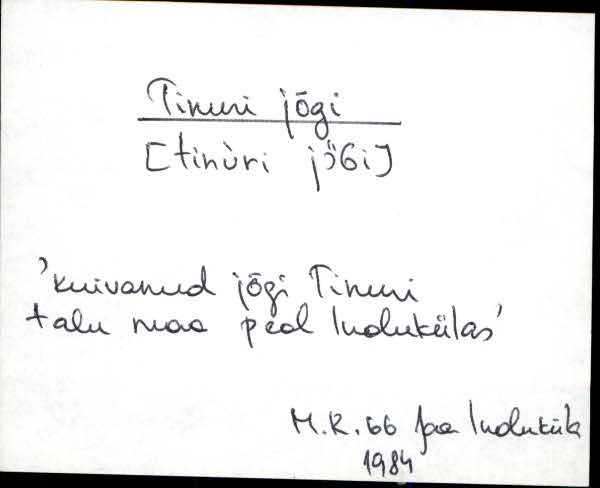 Tinuri jõgi
[tinùri jõGi]
'kuivanud jõgi Tinuri
talu maa peal Indukülas'
M.R. 66 Jaa Induküla
1984